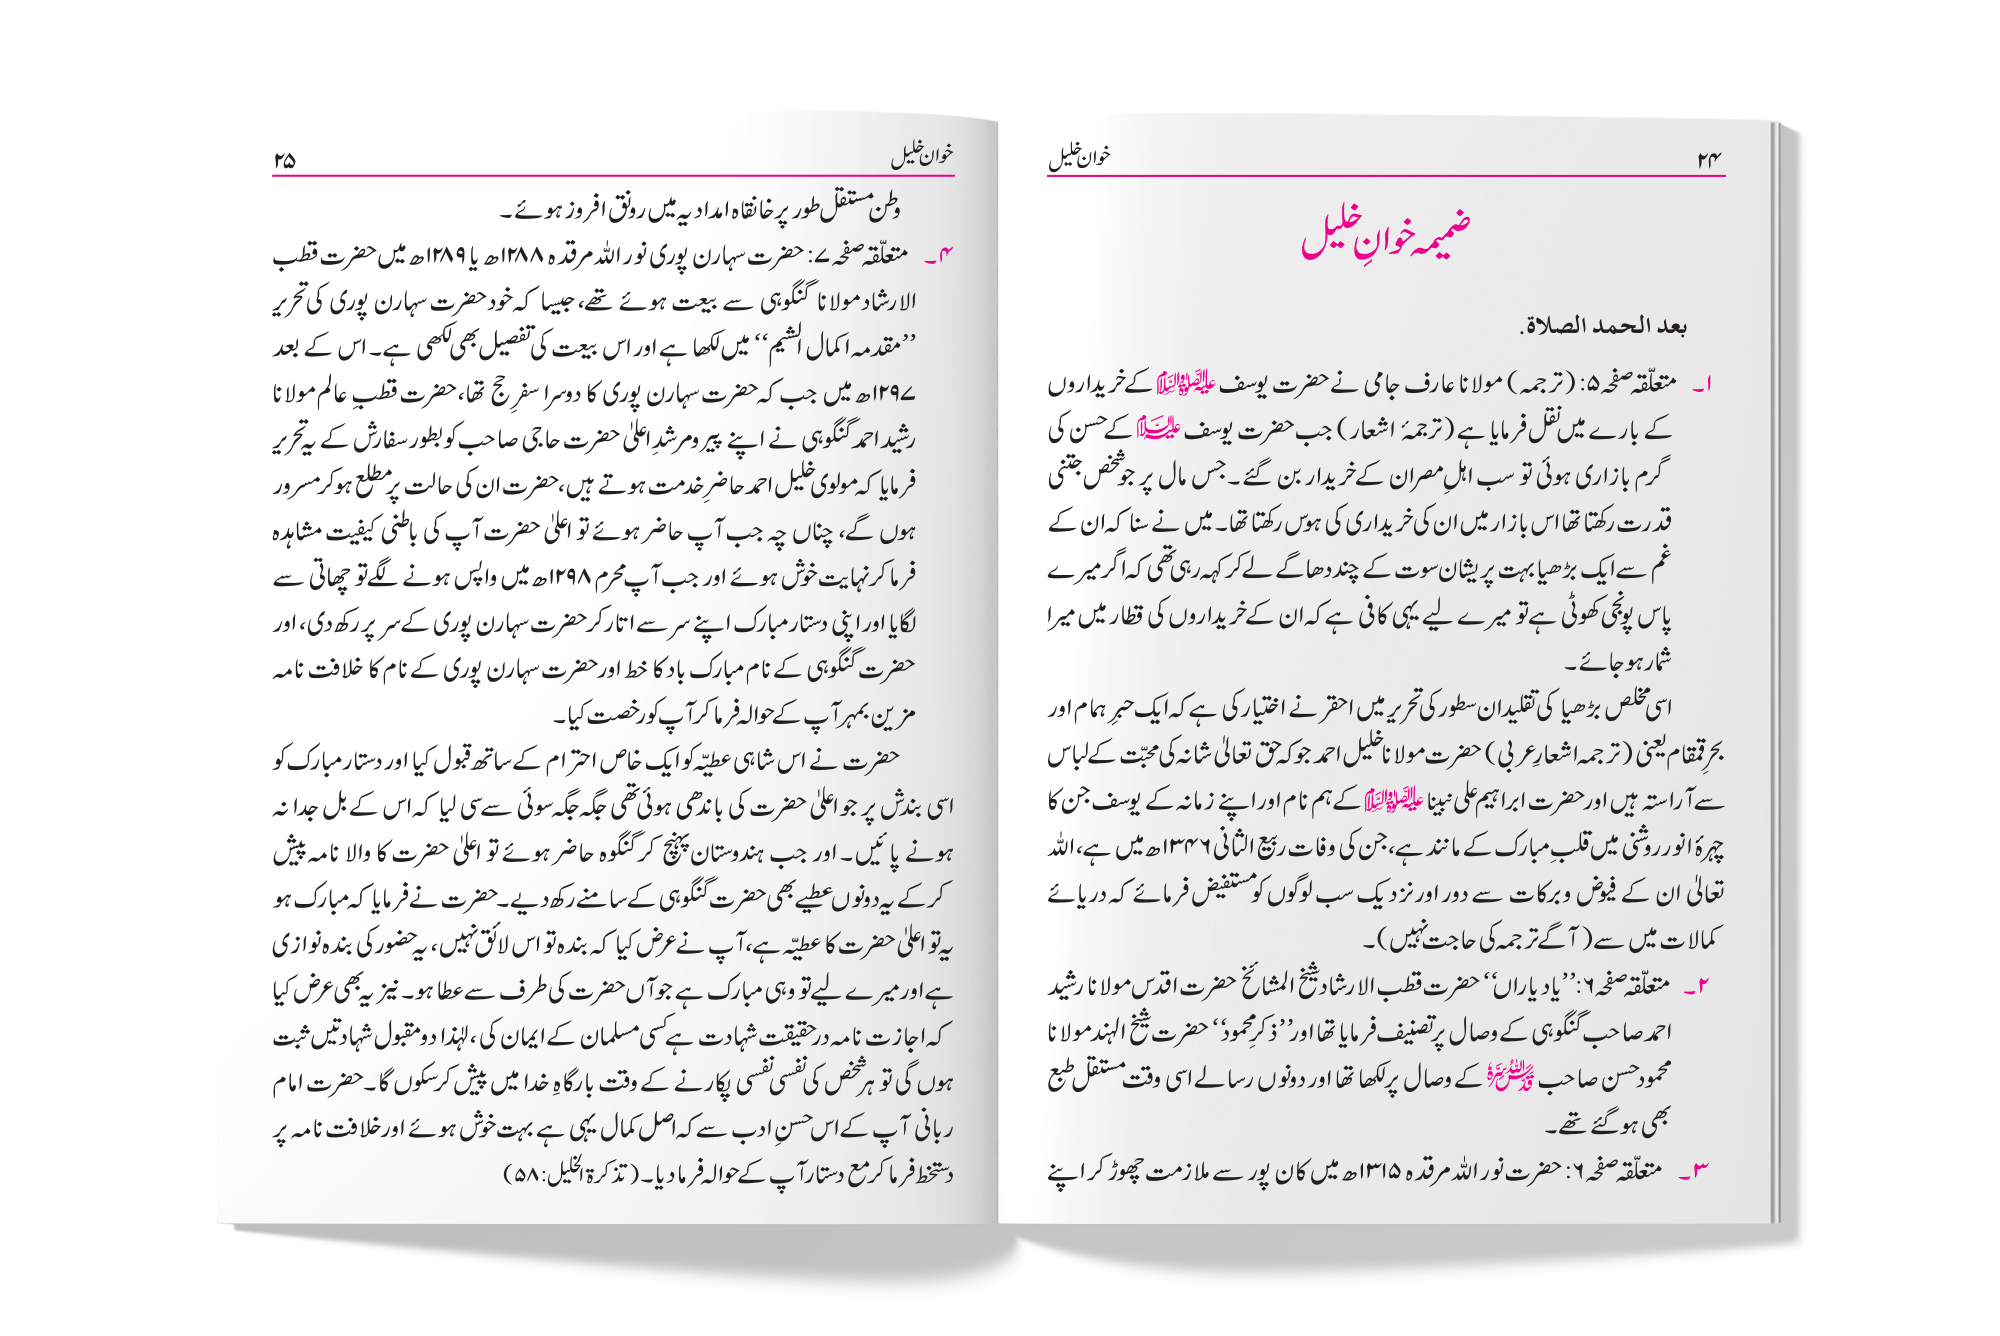 ۲۴
خوان خلیل
ضمیمہ خوانِ خلیل
بعد الحمد الصلاة.
۱۔ متعلّقہ صفحہ ۵: (ترجمہ) مولانا عارف جامی نے حضرت یوسف علیہ الصلوٰۃ والسلام کے خریداروں
کے بارے میں نقل فرمایا ہے (ترجمۂ اشعار) جب حضرت یوسف علیہ السلام کے حسن کی
گرم بازاری ہوئی تو سب اہلِ مصر ان کے خریدار بن گئے۔ جس مال پر جو شخص جتنی
قدرت رکھتا تھا اس بازار میں ان کی خریداری کی ہوس رکھتا تھا۔ میں نے سنا کہ ان کے
غم سے ایک بڑھیا بہت پریشان سوت کے چند دھاگے لے کر کہہ رہی تھی کہ اگر میرے
پاس پونجی کھوٹی ہے تو میرے لیے یہی کافی ہے کہ ان کے خریداروں کی قطار میں میرا
شمار ہو جائے۔
اسی مخلص بڑھیا کی تقلید ان سطور کی تحریر میں احقر نے اختیار کی ہے کہ ایک حبرِ ہمام اور
بحرِ قمقام یعنی (ترجمہ اشعارِ عربی) حضرت مولانا خلیل احمد جو کہ حق تعالیٰ شانہ کی محبّت کے لباس
سے آراستہ ہیں اور حضرت ابراہیم علی نبینا علیہ الصلوٰۃ والسلام کے ہم نام اور اپنے زمانہ کے یوسف جن کا
چہرۂ انور روشنی میں قلبِ مبارک کے مانند ہے، جن کی وفات ربیع الثانی ۱۳۴۶ھ میں ہے، اللہ
تعالیٰ ان کے فیوض و برکات سے دور اور نزدیک سب لوگوں کو مستفیض فرمائے کہ دریائے
کمالات میں سے (آگے ترجمہ کی حاجت نہیں)۔
۲۔ متعلّقہ صفحہ ۶: ’’یاد یاراں‘‘ حضرت قطب الارشاد شیخ المشائخ حضرت اقدس مولانا رشید
احمد صاحب گنگوہی کے وصال پر تصنیف فرمایا تھا اور ’’ذکرِ محمود‘‘ حضرت شیخ الہند مولانا
محمود حسن صاحب قدس اللہ سرہ کے وصال پر لکھا تھا اور دونوں رسالے اسی وقت مستقل طبع
بھی ہو گئے تھے۔
۳۔ متعلّقہ صفحہ ۶: حضرت نور اللہ مرقدہ ۱۳۱۵ھ میں کان پور سے ملازمت چھوڑ کر اپنے
خوان خلیل
۲۵
وطن مستقل طور پر خانقاہ امدادیہ میں رونق افروز ہوئے۔
۴۔ متعلّقہ صفحہ ۷: حضرت سہارن پوری نور اللہ مرقدہ ۱۲۸۸ھ یا ۱۲۸۹ھ میں حضرت قطب
الارشاد مولانا گنگوہی سے بیعت ہوئے تھے، جیسا کہ خود حضرت سہارن پوری کی تحریر
’’مقدمہ اکمال الشیم‘‘ میں لکھا ہے اور اس بیعت کی تفصیل بھی لکھی ہے۔ اس کے بعد
۱۲۹۷ھ میں جب کہ حضرت سہارن پوری کا دوسرا سفرِ حج تھا، حضرت قطبِ عالم مولانا
رشید احمد گنگوہی نے اپنے پیر و مرشدِ اعلیٰ حضرت حاجی صاحب کو بطور سفارش کے یہ تحریر
فرمایا کہ مولوی خلیل احمد حاضرِ خدمت ہوتے ہیں، حضرت ان کی حالت پر مطلع ہو کر مسرور
ہوں گے، چناں چہ جب آپ حاضر ہوئے تو اعلیٰ حضرت آپ کی باطنی کیفیت مشاہدہ
فرما کر نہایت خوش ہوئے اور جب آپ محرم ۱۲۹۸ھ میں واپس ہونے لگے تو چھاتی سے
لگایا اور اپنی دستار مبارک اپنے سر سے اتار کر حضرت سہارن پوری کے سر پر رکھ دی، اور
حضرت گنگوہی کے نام مبارک باد کا خط اور حضرت سہارن پوری کے نام کا خلافت نامہ
مزین بمہر آپ کے حوالہ فرما کر آپ کو رخصت کیا۔
حضرت نے اس شاہی عطیّہ کو ایک خاص احترام کے ساتھ قبول کیا اور دستار مبارک کو
اسی بندش پر جو اعلیٰ حضرت کی باندھی ہوئی تھی جگہ جگہ سوئی سے سی لیا کہ اس کے بل جدا نہ
ہونے پائیں۔ اور جب ہندوستان پہنچ کر گنگوہ حاضر ہوئے تو اعلیٰ حضرت کا والا نامہ پیش
کر کے یہ دونوں عطیے بھی حضرت گنگوہی کے سامنے رکھ دیے۔ حضرت نے فرمایا کہ مبارک ہو
یہ تو اعلیٰ حضرت کا عطیّہ ہے، آپ نے عرض کیا کہ بندہ تو اس لائق نہیں، یہ حضور کی بندہ نوازی
ہے اور میرے لیے تو وہی مبارک ہے جو آں حضرت کی طرف سے عطا ہو۔ نیز یہ بھی عرض کیا
کہ اجازت نامہ در حقیقت شہادت ہے کسی مسلمان کے ایمان کی، لہٰذا دو مقبول شہادتیں ثبت
ہوں گی تو ہر شخص کی نفسی نفسی پکارنے کے وقت بارگاہِ خدا میں پیش کر سکوں گا۔ حضرت امام
ربانی آپ کے اس حسنِ ادب سے کہ اصل کمال یہی ہے بہت خوش ہوئے اور خلافت نامہ پر
دستخط فرما کر مع دستار آپ کے حوالہ فرما دیا۔ (تذکرۃ الخلیل: ۵۸)